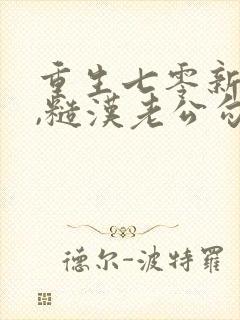 重生七零新
,糙汉老公勾
德尔-波特羅